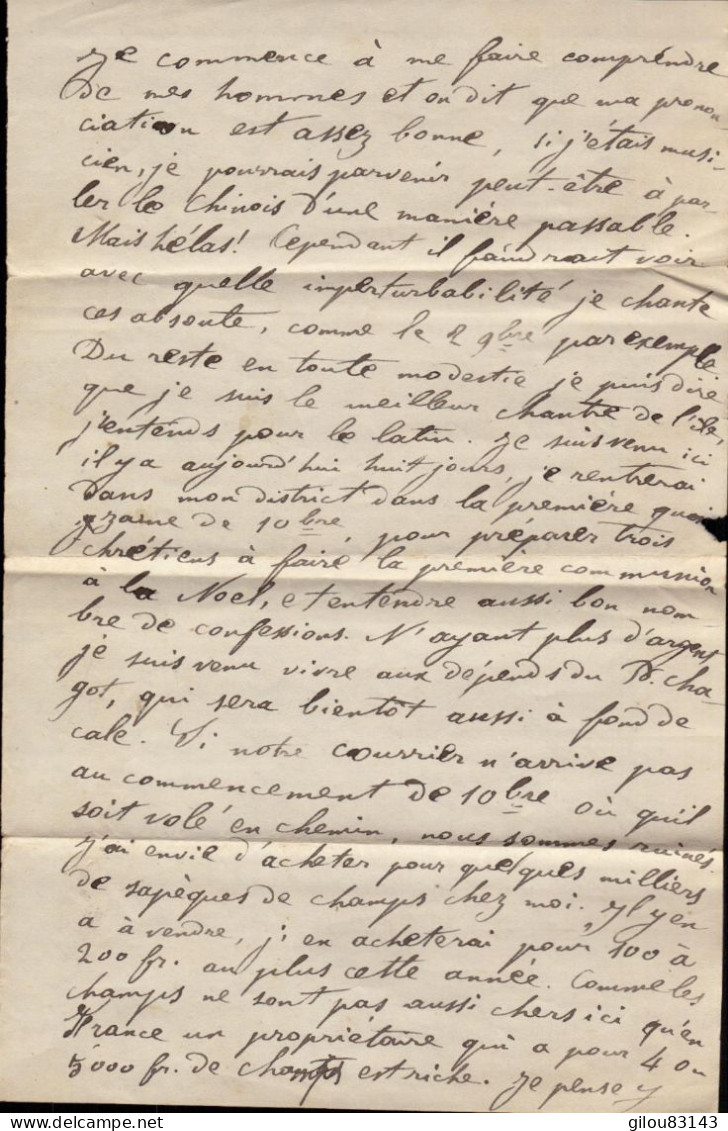 Je commence à me faire comprendre
de mes hommes et on dit que ma pronon
ciation est assez bonne, si j'étais musi-
cien, je pourrais parvenir peut-être à par-
ler le chinois d'une manière passable.
Mais hélas! Cependant il faudrait voir
avec quelle imperturbabilité je chante
ces absoute, comme le 2 9bre par exemple
Du reste en toute modestie je puis dire
que je suis le meilleur chantre de l'île,
j'entends pour le latin. Je suis venu ici
il y a aujourd'hui huit jours, je rentrerai
dans mon district dans la première quin
zaine de 10bre, pour préparer trois
chrétiens à faire la première communion
à la Noel, et entendre aussi bon nom
bre de confessions. N'ayant plus d'argent
je suis venu vivre aux dépends du P. Cha-
got, qui sera bientôt aussi à fond de
cale. Si notre courrier n'arrive pas
au commencement de 10bre ou qu'il
soit volé en chemin, nous sommes ruinés.
J'ai envie d'acheter pour quelques milliers
de sapèques de champs chez moi. Il y en
a à vendre, j'en acheterai pour 100 à
200 fr. au plus cette année. Comme les
champs ne sont pas aussi chers ici qu'en
France un propriétaire qui a pour 4 ou
5000 fr. de champs est riche. Je pense y
www.delcampe.net
gilou83143